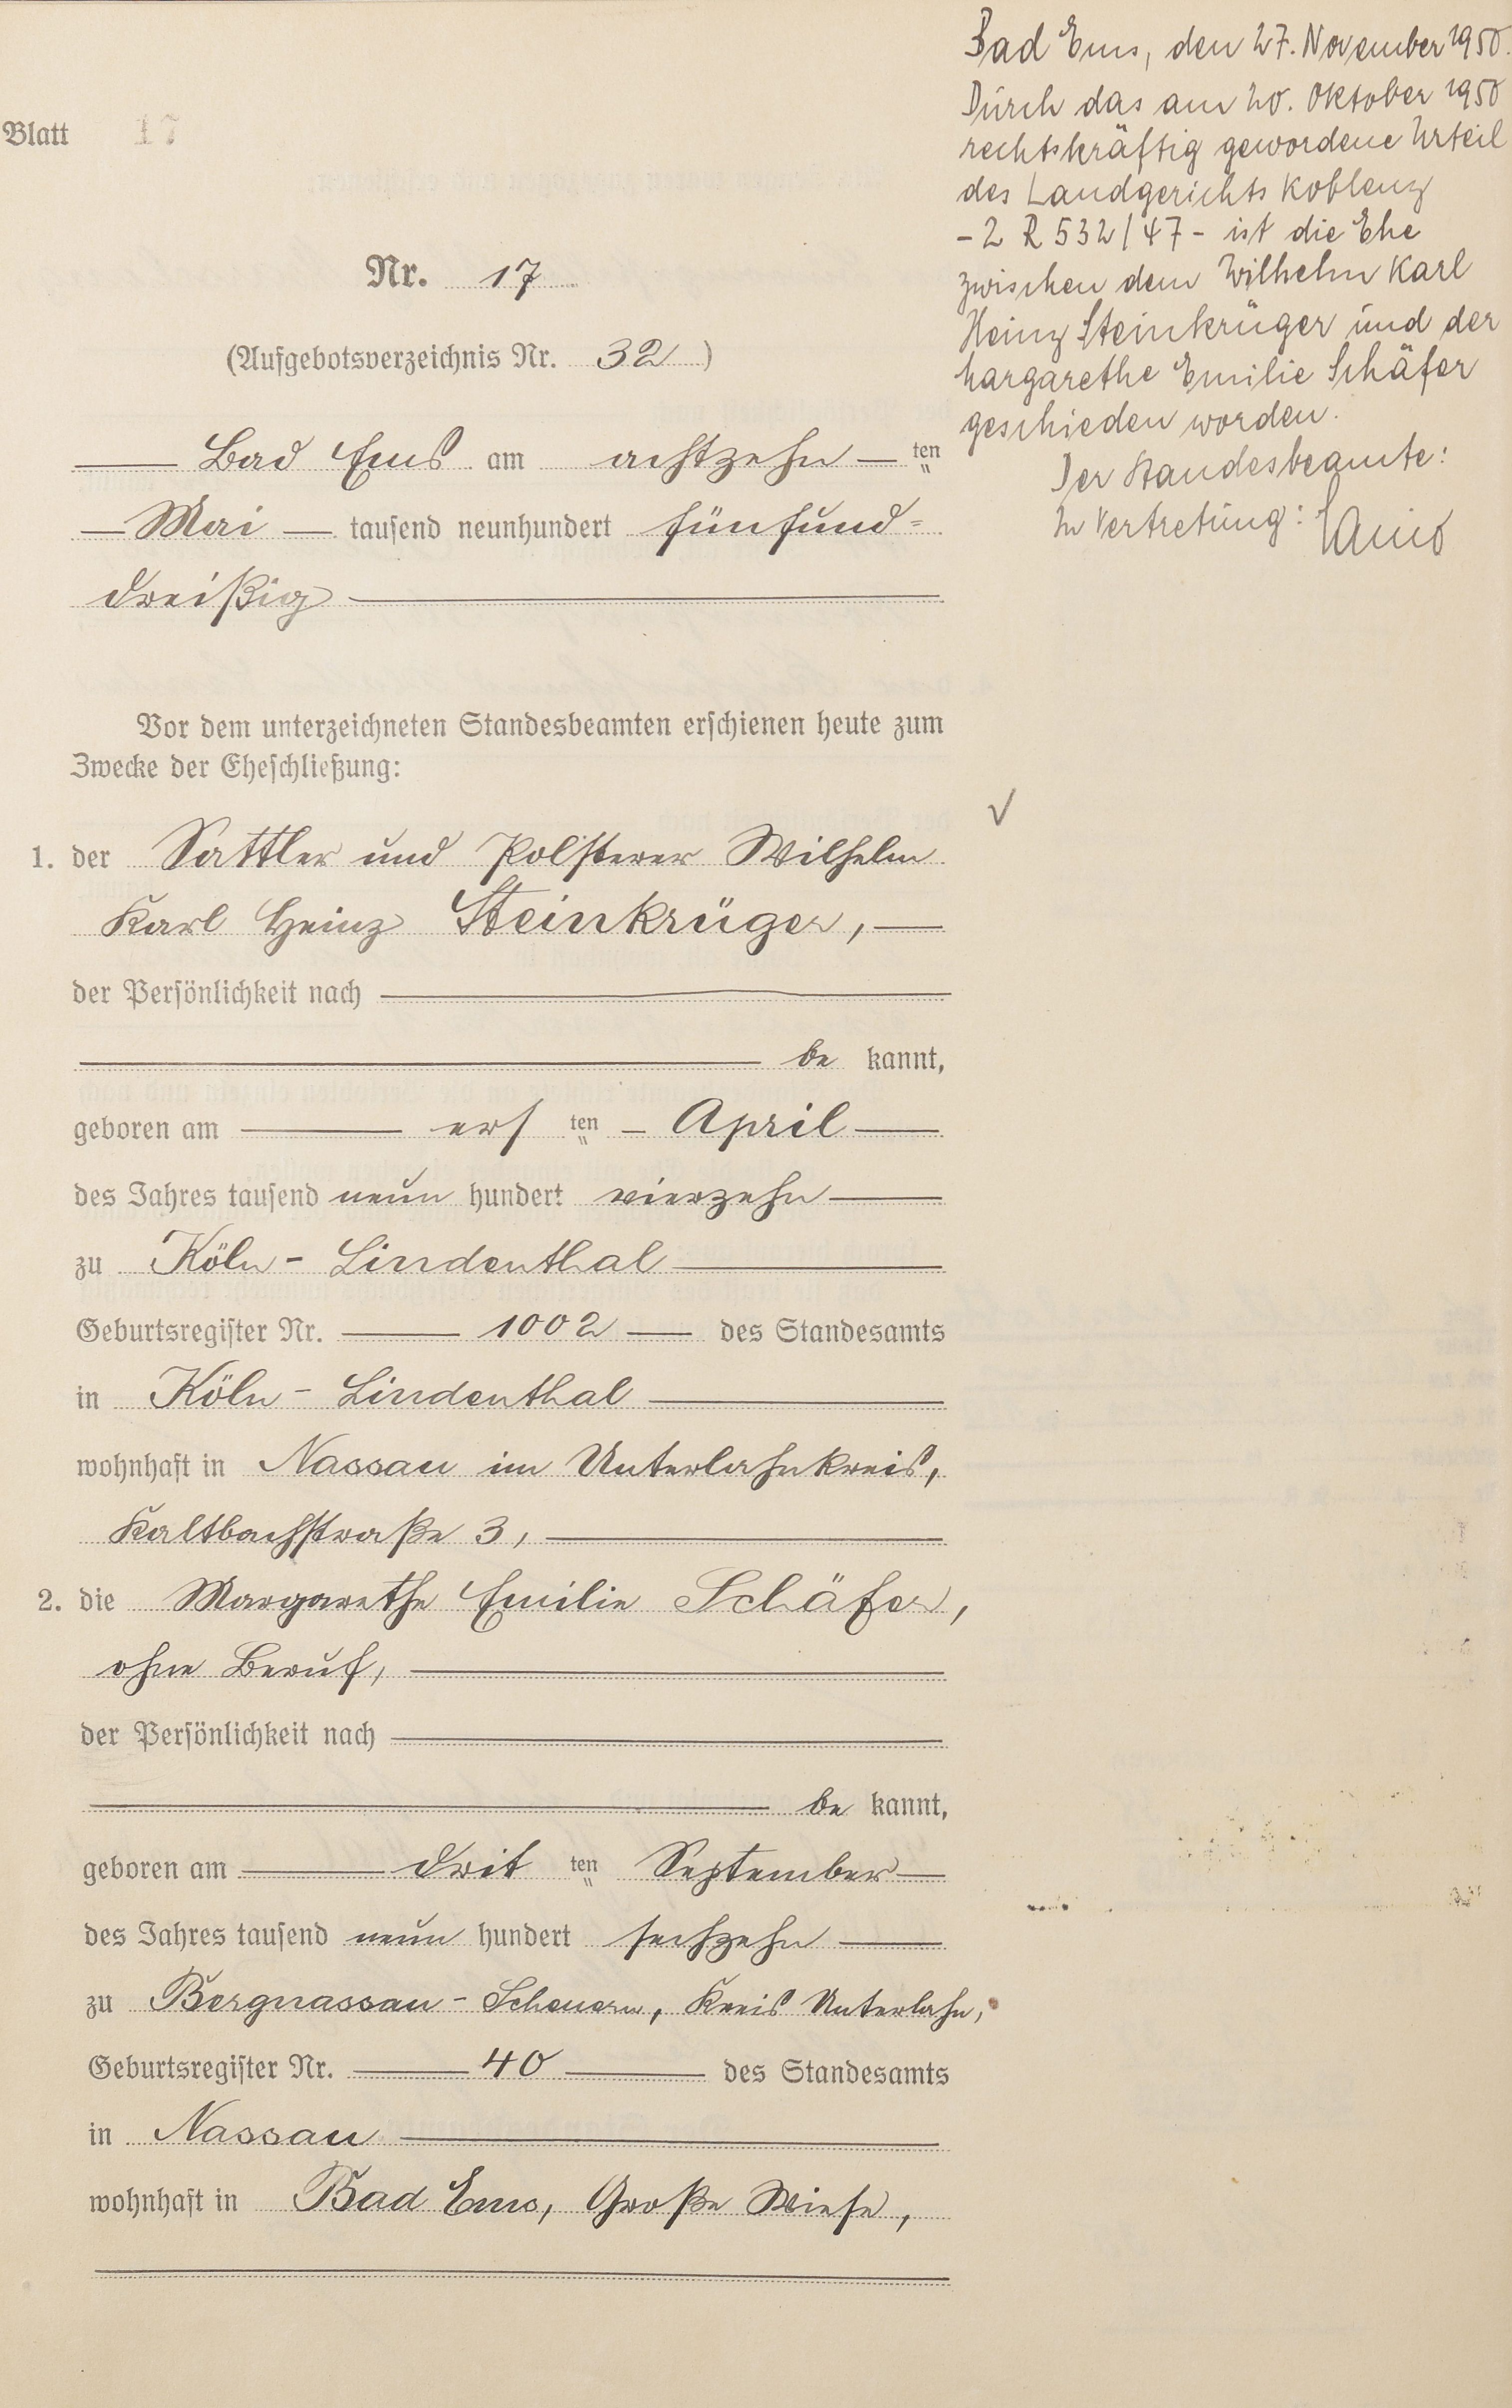 Blatt 17
Nr. 17
(Aufgebotsverzeichnis Nr. 32)
Bad Ems am achtzehn ten
Mai tausend neunhundert fünfund=
dreißig
Vor dem unterzeichneten Standesbeamten erschienen heute zum
Zwecke der Eheschließung:
1. der Sattler und Polsterer Wilhelm
Karl Heinz Steinkrüger,
der Persönlichkeit nach
be kannt,
geboren am ers ten April
des Jahres tausend neun hundert vierzehn
zu Köln-Lindenthal
Geburtsregister Nr. 1002 des Standesamts
in Köln-Lindenthal
wohnhaft in Nassau im Unterlahnkreis,
Kaltbachstraße 3,
2. die Margarethe Emilie Schäfer,
ohne Beruf,
der Persönlichkeit nach
be kannt,
geboren am drit ten September
des Jahres tausend neun hundert sechzehn
zu Bergnassau-Scheuern, Kreis Unterlahn,
Geburtsregister Nr. 40 des Standesamts
in Nassau
wohnhaft in Bad Ems, Große Wiese,
Bad Ems, den 27. November 1950.
Durch das am 20. Oktober 1950
rechtskräftig gewordene Urteil
des Landgerichts Koblenz
- 2 R 532/47 - ist die Ehe
zwischen dem Wilhelm Karl
Heinz Steinkrüger und der
Margarethe Emilie Schäfer
geschieden worden.
Der Standesbeamte:
In Vertretung: